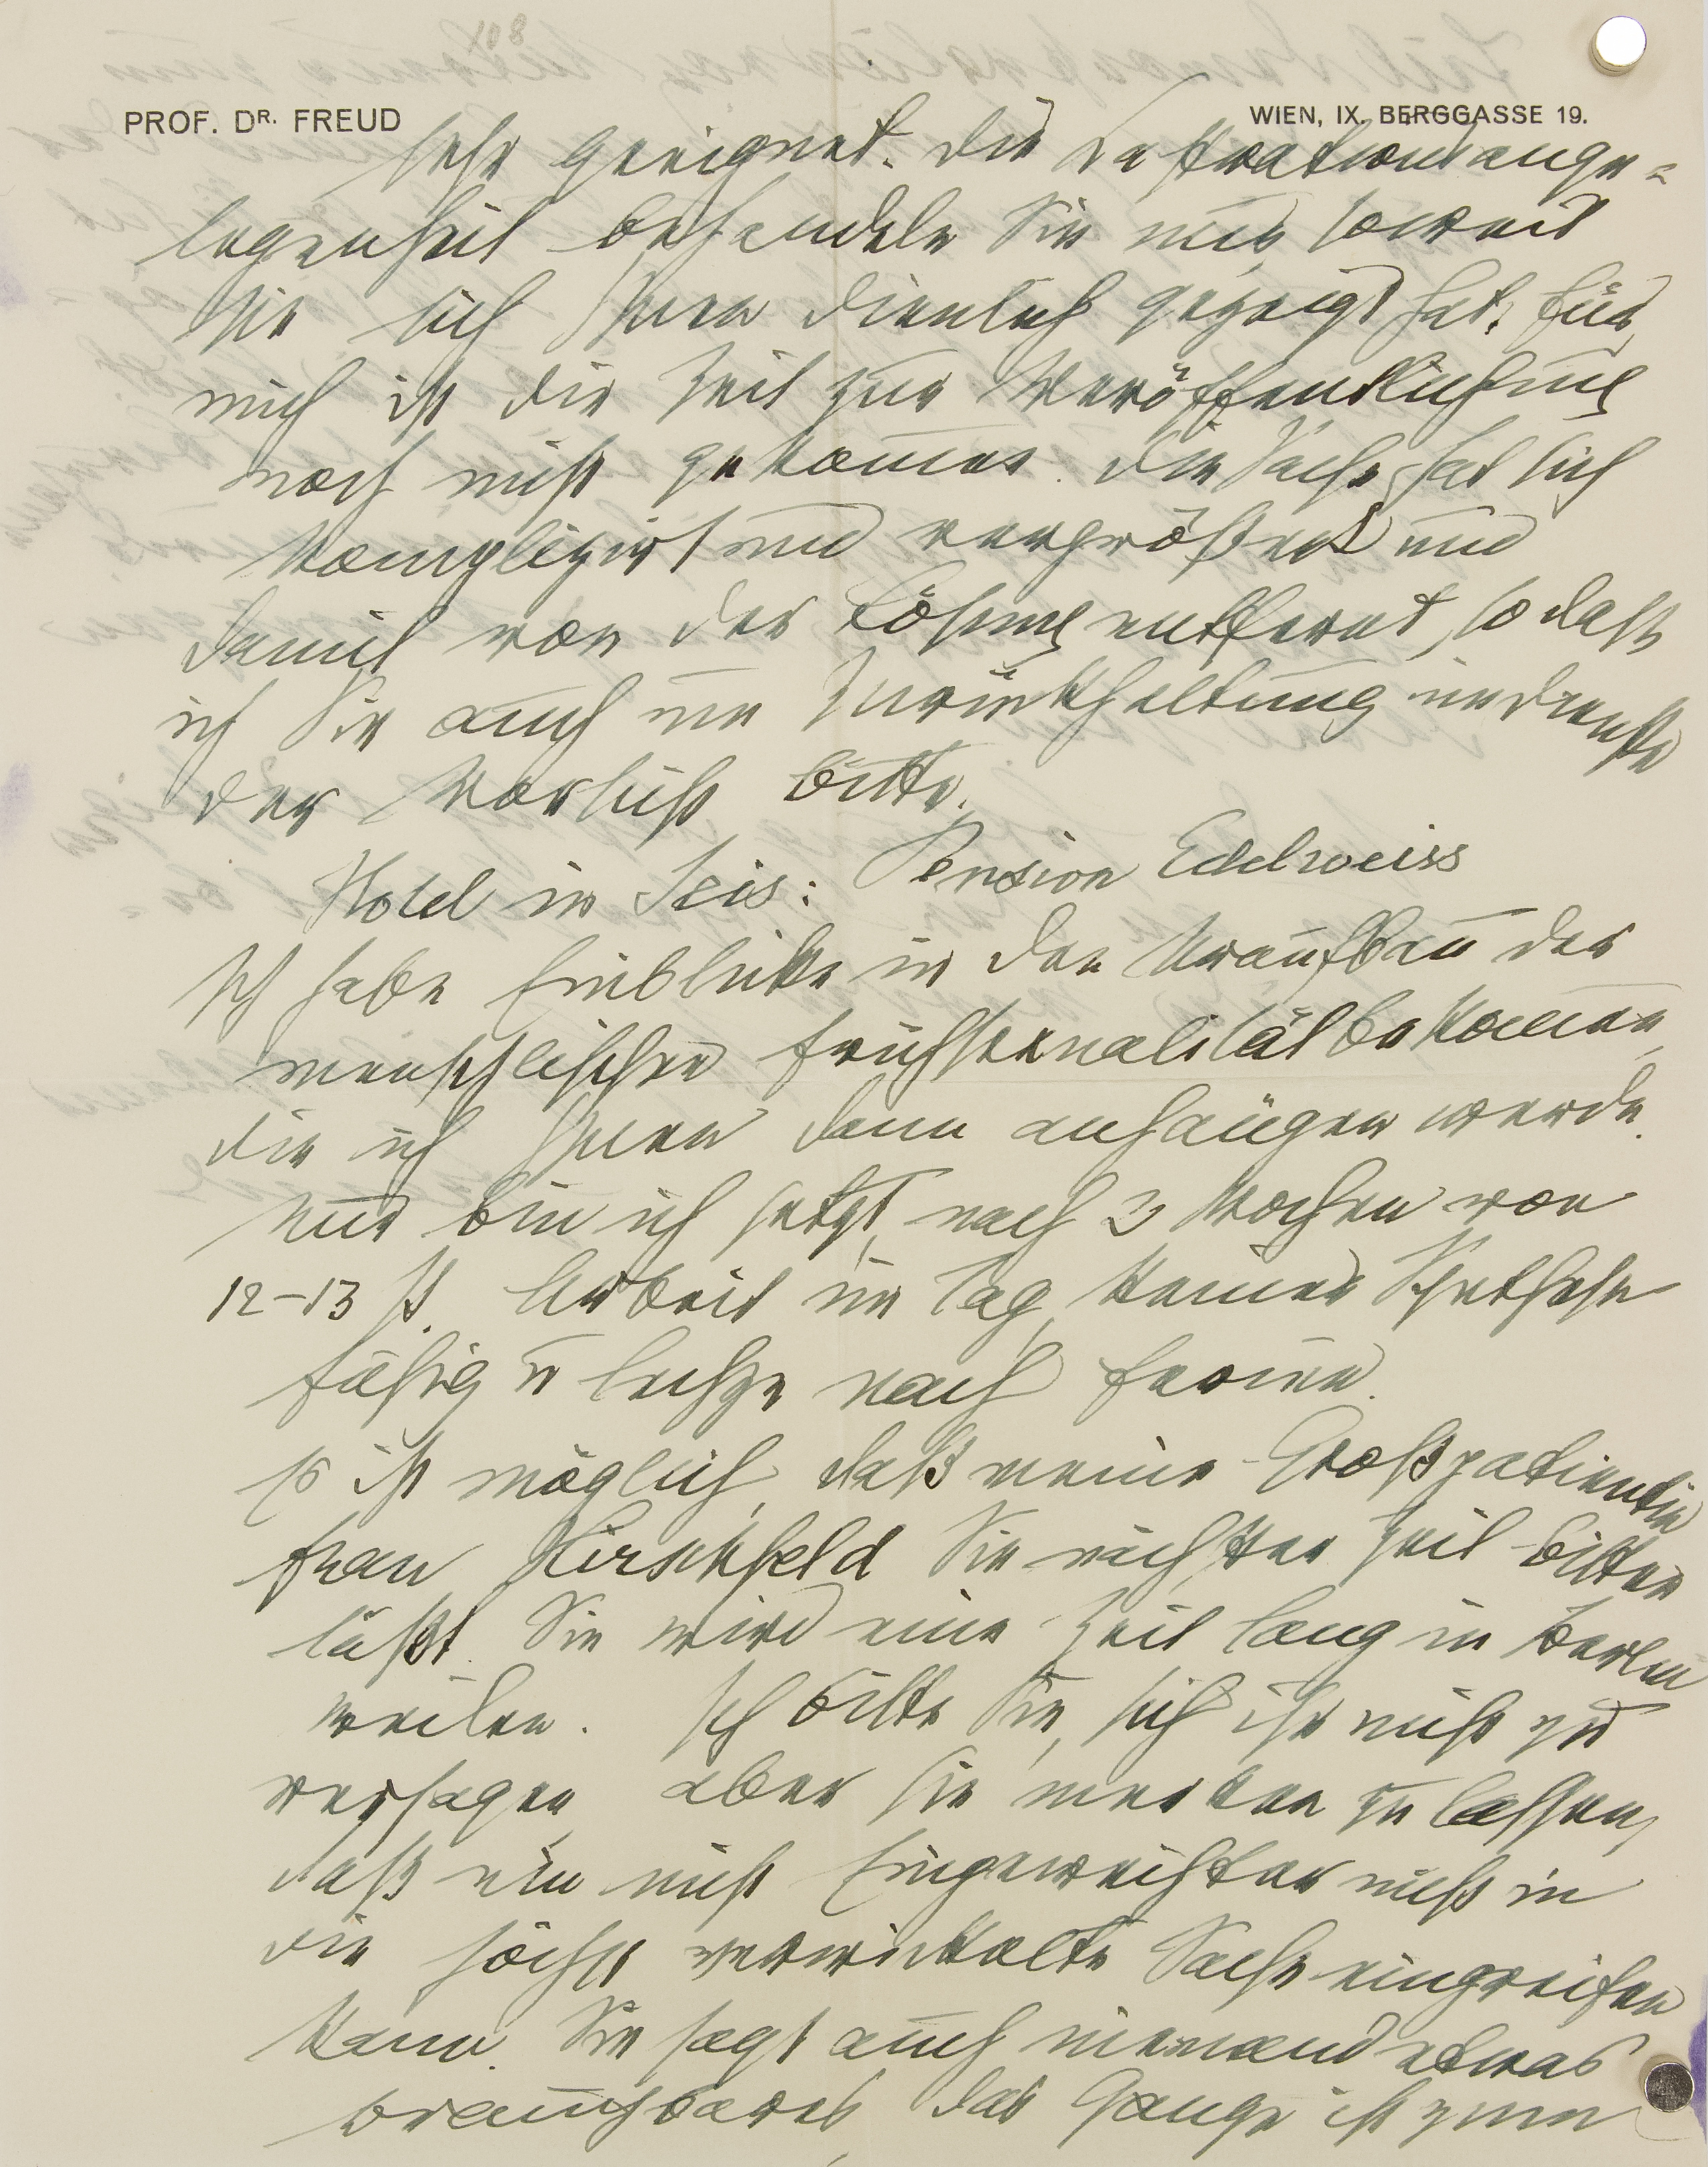 108
PROF. DR. FREUD
WIEN, IX. BERGGASSE 19.
sehr geeignet. Die Kastrationsange-
legenheit behandeln Sie nur, soweit
sie sich Ihnen dienlich gezeigt hat. Für
mich ist die Zeit zur Veröffentlichung
noch nicht gekommen. Die Sache hat sich
kompliziert und vergrößert und
damit von der Lösung entfernt, so daß
ich Sie auch um Zurückhaltung im Dienste
der Vorsicht bitte.
Hotel in Seis: Pension Edelweiss
Ich habe Einblicke in den Uraufbau der
menschlichen Frühsexualität bekommen,
die ich Ihnen dann anhängen werde.
Nur bin ich jetzt, nach 3 Wochen von
12–13 St. Arbeit im Tag, keiner Synthese
fähig u lechze nach Ferien.
Es ist möglich, daß meine Großpatientin
Frau Hirschfeld Sie nächster Zeit bitten
läßt. Sie wird eine Zeit lang in Berlin
weilen. Ich bitte Sie, sich ihr nicht zu
versagen, aber sie merken zu lassen,
daß ein nicht Eingeweihter nicht in
die höchst verwickelte Sache eingreifen
kann. Sie sagt auch niemand etwas
brauchbares, das Ganze ist zum